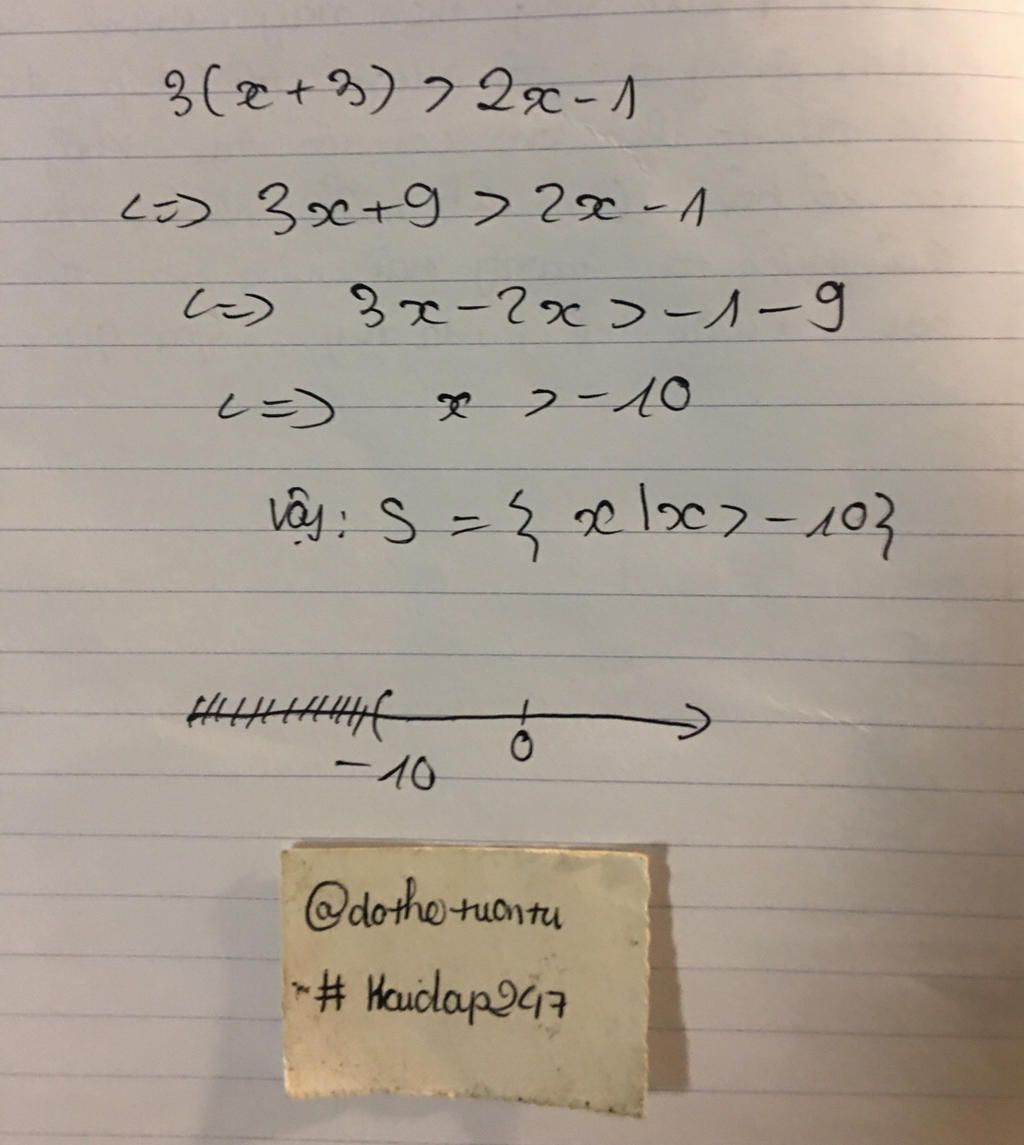 3(x+3) > 2x-1
<=> 3x+9 > 2x-1
<=> 3x-2x > -1-9
<=> x > -10
Vậy: S = { x | x > -10}
-10 0
@dothetuantu
# Hoidap247